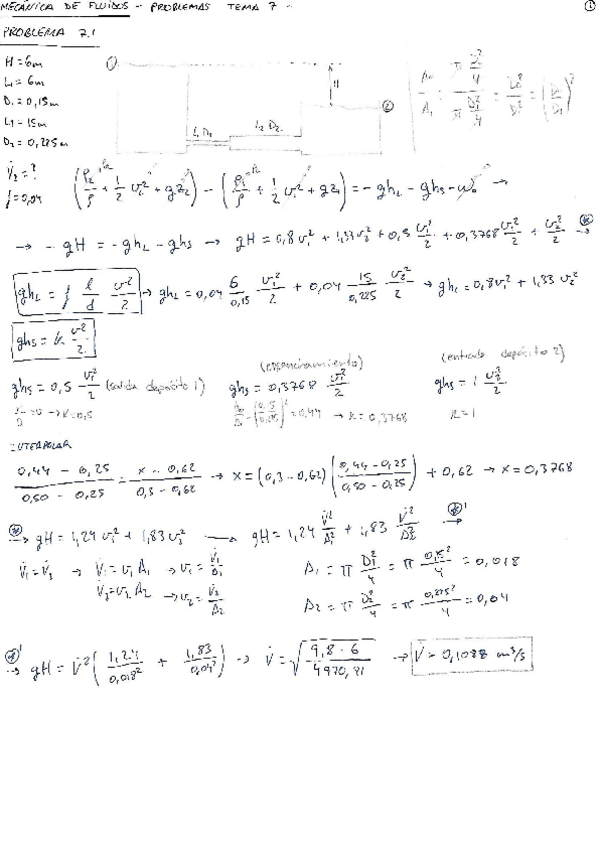 MECÁNICA DE FLUIDOS - PROBLEMAS TEMA 7 - ①
PROBLEMA 7.1
H = 6m
L₁ = 6m
D₁ = 0,15m
L₂ = 15m
D₂ = 0,225m
V̇₂ = ?
f = 0,04
① H ②
L₁ D₁ L₂ D₂
(P₂/ρ + 1/2 v₂² + gz₂) - (P₁/ρ + 1/2 v₁² + gz₁) = -gh_L - gh_S - w₀ →
→ -gH = -gh_L - gh_S → gH = 0,8v₁² + 1,33v₂² + 0,5 v₁²/2 + 0,3768 v₁²/2 + v₂²/2 ⊛→
gh_L = f l/d v²/2 → gh_L = 0,04 6/0,15 v₁²/2 + 0,04 15/0,225 v₂²/2 → gh_L = 0,8v₁² + 1,33v₂²
gh_S = k v²/2
gh_S = 0,5 v₁²/2 (salida depósito 1)
→ k = 0,5
(ensanchamiento)
gh_S = 0,3768 v₁²/2
= 0,44 → k = 0,3768
(entrada depósito 2)
gh_S = 1 v₂²/2
k = 1
INTERPOLAR
0,44 - 0,25 / 0,50 - 0,25 = x - 0,62 / 0,3 - 0,62 → x = (0,3 - 0,62) (0,44 - 0,25 / 0,50 - 0,25) + 0,62 → x = 0,3768
⊛→ gH = 1,24v₁² + 1,83v₂² → gH = 1,24 V̇²/A₁² + 1,83 V̇²/A₂² ⊛'→
V̇₁ = V̇₂ → V̇₁ = v₁A₁ → v₁ = V̇₁/A₁
V̇₂ = v₂A₂ → v₂ = V̇₂/A₂
A₁ = π D₁²/4 = π 0,15²/4 = 0,018
A₂ = π D₂²/4 = π 0,225²/4 = 0,04
⊛'→ gH = V̇² (1,24/0,018² + 1,83/0,04²) → V̇ = √(9,8 · 6 / 4970,91) → V̇ = 0,1088 m³/s